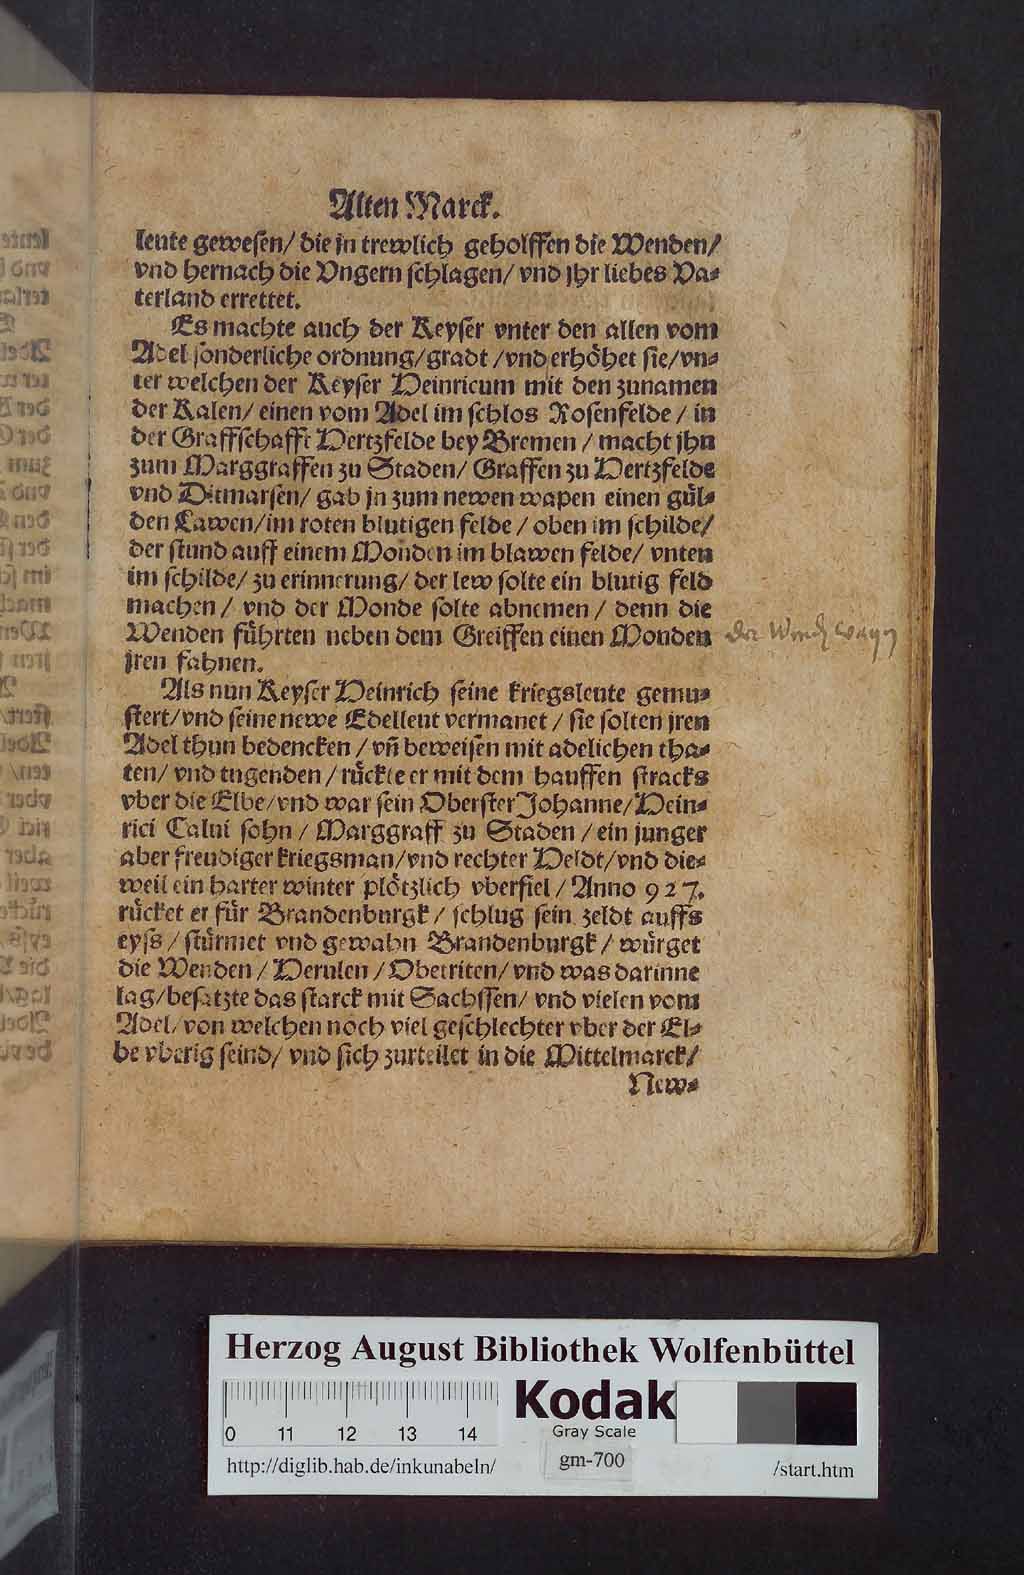 Alten Marck.
leute gewesen/ die jn trewlich geholffen die Wenden/
vnd hernach die Vngern schlagen/ vnd jhr liebes Va-
terland errettet.
Es machte auch der Keyser vnter den allen vom
Adel sonderliche ordnung/gradt /vnd erhöhet sie/vn-
ter welchen der Keyser Heinricum mit den zunamen
der Kalen/ einen vom Adel im schlos Rosenfelde / in
der Graffschafft Hertzfelde bey Bremen / macht jhn
zum Marggraffen zu Staden/ Graffen zu Hertzfelde
vnd Ditmarsen/ gab jn zum newen wapen einen gül-
den Lawen/im roten blutigen felde / oben im schilde/
der stund auff einem Monden im blawen felde/ vnten
im schilde/ zu erinnerung/ der lew solte ein blutig feld
machen/ vnd der Monde solte abnemen / denn die
Wenden führten neben dem Greiffen einen Monden
jren fahnen.
Als nun Keyser Heinrich seine kriegsleute gemu-
stert/vnd seine newe Edelleut vermanet / sie solten jren
Adel thun bedencken / vñ beweisen mit adelichen tha-
ten/ vnd tugenden / rückte er mit dem hauffen stracks
vber die Elbe/vnd war sein Oberster Johanne/ Hein-
rici Calui sohn / Marggraff zu Staden / ein junger
aber freudiger kriegsman/vnd rechter Heldt/vnd die-
weil ein harter winter plötzlich vberfiel / Anno 927.
rücket er für Brandenburgk/ schlug sein zeldt auffs
eyss / stürmet vnd gewahn Brandenburgk/ würget
die Wenden / Herulen / Obetriten/ vnd was darinne
lag/besatzte das starck mit Sachssen/ vnd vielen vom
Adel/ von welchen noch viel geschlechter vber der El-
be vberig seind/ vnd sich zurteilet in die Mittelmarck/
New-
Herzog August Bibliothek Wolfenbüttel
Kodak
0 11 12 13 14
Gray Scale
http://diglib.hab.de/inkunabeln/
gm-700
/start.htm